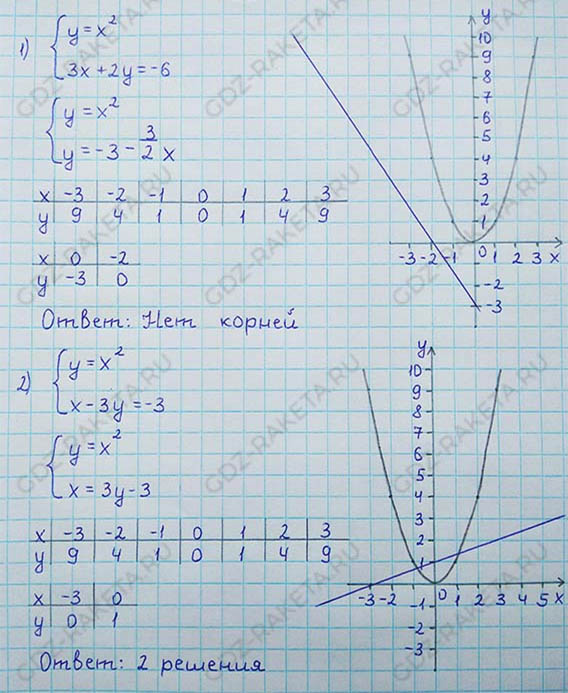 1) { y = x²
3x + 2y = -6
{ y = x²
y = -3 - 3/2 x
x | -3 | -2 | -1 | 0 | 1 | 2 | 3
y | 9 | 4 | 1 | 0 | 1 | 4 | 9
x | 0 | -2
y | -3 | 0
Ответ: Нет корней
y
10
9
8
7
6
5
4
3
2
1
-3 -2 -1 0 1 2 3 x
-2
-3
2) { y = x²
x - 3y = -3
{ y = x²
x = 3y - 3
x | -3 | -2 | -1 | 0 | 1 | 2 | 3
y | 9 | 4 | 1 | 0 | 1 | 4 | 9
x | -3 | 0
y | 0 | 1
Ответ: 2 решения
y
10
9
8
7
6
5
4
3
2
1
-3 -2 0 1 2 3 4 5 x
-1
-2
-3
GDZ-RAKETA.RU